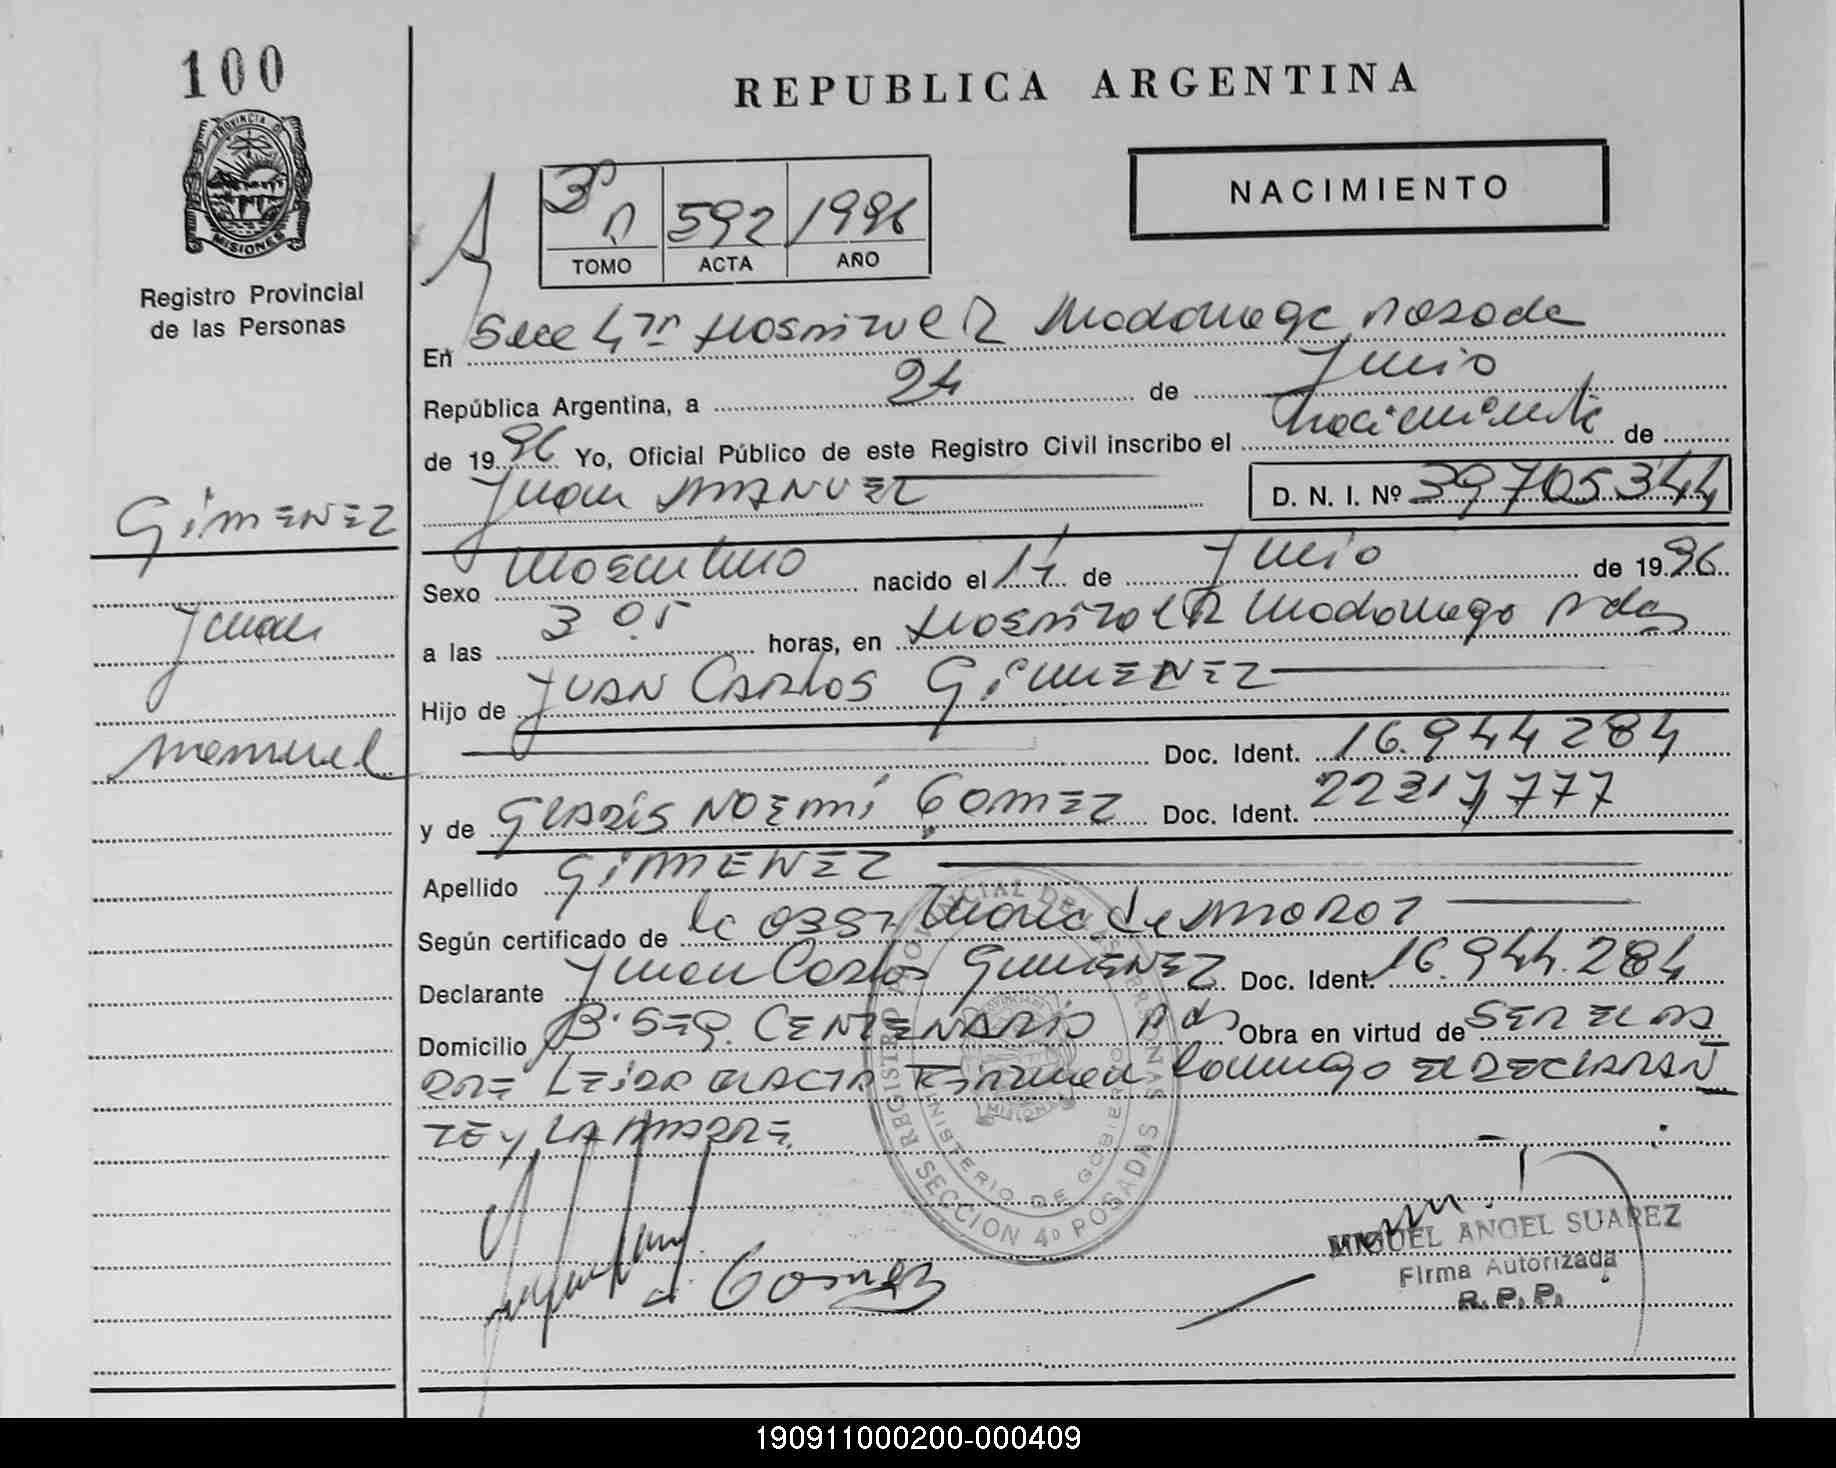 100
REPUBLICA ARGENTINA
PROVINCIA DE
MISIONES
Registro Provincial
de las Personas
NACIMIENTO
3º 592 1996
TOMO ACTA AÑO
En Secc 4ta Hospital R Madariaga Posadas
República Argentina, a 24 de Junio
de 1996 Yo, Oficial Público de este Registro Civil inscribo el nacimiento de
Juan MANUEL D. N. I. Nº 39705344
GIMENEZ
Juan
Manuel
Sexo Masculino nacido el 17 de Junio de 1996
a las 3 05 horas, en Hospital R Madariaga Pdas
Hijo de JUAN CARLOS GIMENEZ
Doc. Ident. 16.944284
y de GLADIS NOEMI GOMEZ Doc. Ident. 22317777
Apellido GIMENEZ
Según certificado de la obst Maria de
Declarante Juan Carlos GIMENEZ Doc. Ident. 16.944.284
Domicilio Bº CENTENARIO Pdas Obra en virtud de SER EL PA
DRE LEIDA EL ACTA Firman Conmigo EL DECLARAN
TE Y LA MADRE.
SECCION 4º POSADAS
MINISTERIO DE GOBIERNO
Gomez
MIGUEL ANGEL SUAREZ
Firma Autorizada
R. P. P.
190911000200-000409